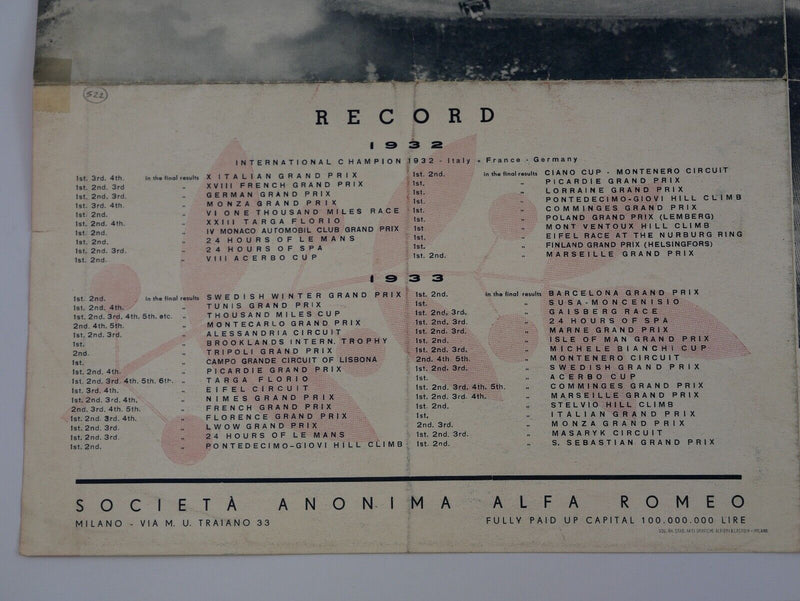 522
RECORD
1932
INTERNATIONAL CHAMPION 1932 - Italy - France - Germany
1st. 3rd. 4th. in the final results X ITALIAN GRAND PRIX
1st. 2nd. 3rd „ XVIII FRENCH GRAND PRIX
1st. 2nd. 3rd. „ GERMAN GRAND PRIX
1st. 3rd. 4th. „ MONZA GRAND PRIX
1st. 2nd. „ VI ONE THOUSAND MILES RACE
1st. 2nd. 4th. „ XXIII TARGA FLORIO
1st. 2nd. „ IV MONACO AUTOMOBIL CLUB GRAND PRIX
1st. 2nd. „ 24 HOURS OF LE MANS
1st. 2nd. 3rd. „ 24 HOURS OF SPA
1st. 2nd. „ VIII ACERBO CUP
1st. 2nd. in the final results CIANO CUP - MONTENERO CIRCUIT
1st. „ PICARDIE GRAND PRIX
1st. „ LORRAINE GRAND PRIX
1st. „ PONTEDECIMO-GIOVI HILL CLIMB
1st. „ COMMINGES GRAND PRIX
1st. „ POLAND GRAND PRIX (LEMBERG)
1st. „ MONT VENTOUX HILL CLIMB
1st. „ EIFEL RACE AT THE NURBURG RING
1st. „ FINLAND GRAND PRIX (HELSINGFORS)
1st. 2nd. „ MARSEILLE GRAND PRIX
1933
1st. 2nd. in the final results SWEDISH WINTER GRAND PRIX
1st. 2nd. 4th. „ TUNIS GRAND PRIX
1st. 2nd. 3rd. 4th. 5th. etc. „ THOUSAND MILES CUP
2nd. 4th. 5th. „ MONTECARLO GRAND PRIX
1st. 2nd. 3rd. „ ALESSANDRIA CIRCUIT
1st. „ BROOKLANDS INTERN. TROPHY
2nd. „ TRIPOLI GRAND PRIX
1st. „ CAMPO GRANDE CIRCUIT OF LISBONA
1st. 2nd. 4th. „ PICARDIE GRAND PRIX
1st. 2nd. 3rd. 4th. 5th. 6th. „ TARGA FLORIO
1st. 3rd. 4th. „ EIFEL CIRCUIT
1st. 2nd. 3rd. 4th. „ NIMES GRAND PRIX
2nd. 3rd. 4th. 5th. „ FRENCH GRAND PRIX
1st. 2nd. 3rd. 4th. „ FLORENCE GRAND PRIX
1st. 2nd. 3rd. „ LWOW GRAND PRIX
1st. 2nd. 3rd. „ 24 HOURS OF LE MANS
1st. 2nd. „ PONTEDECIMO-GIOVI HILL CLIMB
1st. 2nd. in the final results BARCELONA GRAND PRIX
1st. „ SUSA-MONCENISIO
1st. 2nd. 3rd. „ GAISBERG RACE
1st. 2nd. 3rd. „ 24 HOURS OF SPA
1st. 2nd. „ MARNE GRAND PRIX
1st. 2nd. „ ISLE OF MAN GRAND PRIX
1st. 2nd. 3rd. „ MICHELE BIANCHI CUP
2nd. 4th. 5th. „ MONTENERO CIRCUIT
1st. 2nd. 3rd. „ SWEDISH GRAND PRIX
1st. „ ACERBO CUP
1st. 2nd. 3rd. 4th. 5th. „ COMMINGES GRAND PRIX
1st. 2nd. 3rd. 4th. „ MARSEILLE GRAND PRIX
1st. 2nd. „ STELVIO HILL CLIMB
1st. „ ITALIAN GRAND PRIX
2nd. 3rd. „ MONZA GRAND PRIX
1st. 2nd. 3rd. „ MASARYK CIRCUIT
1st. 2nd. „ S. SEBASTIAN GRAND PRIX
SOCIETÀ ANONIMA ALFA ROMEO
MILANO - VIA M. U. TRAIANO 33
FULLY PAID UP CAPITAL 100.000.000 LIRE